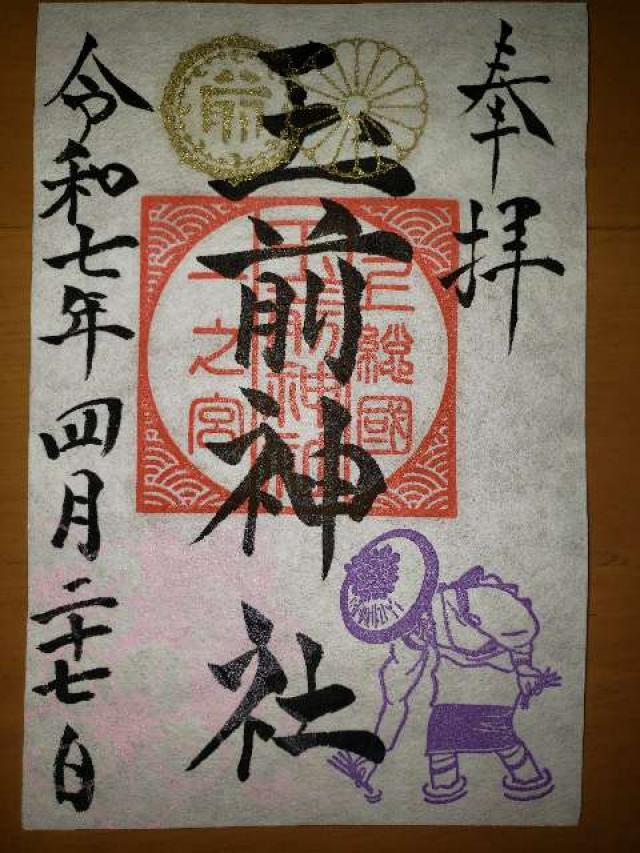 奉拝
上総國
玉前神社
一之宮
玉前神社
令和七年四月二十七日